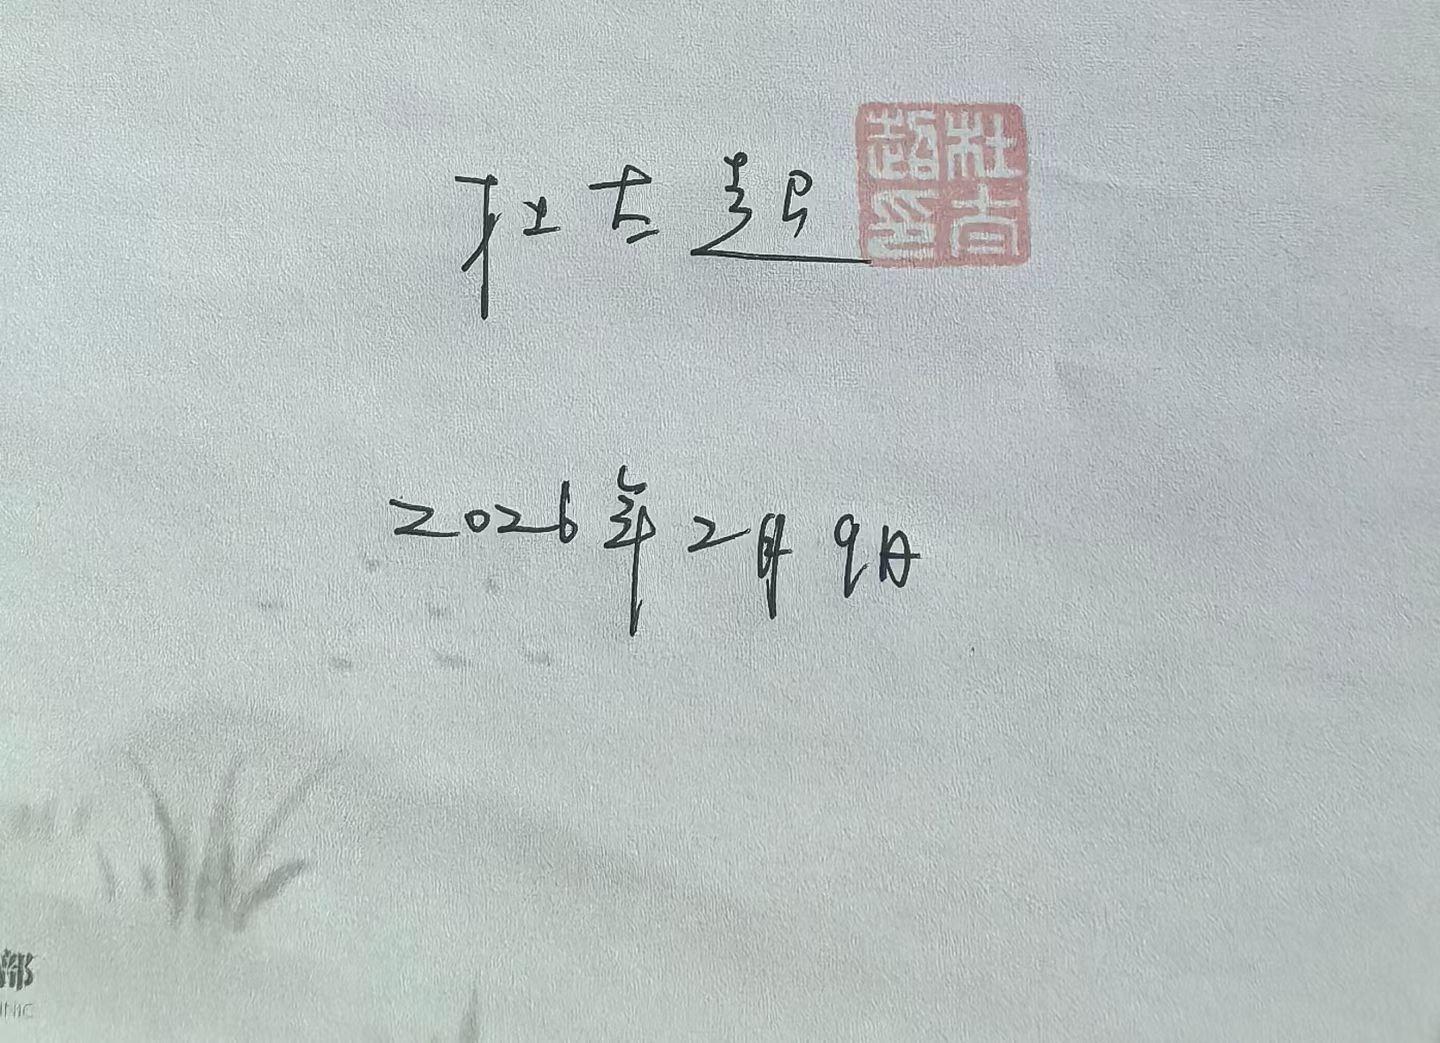 杜太超
杜太超印
2026年2月9日
部
INIC